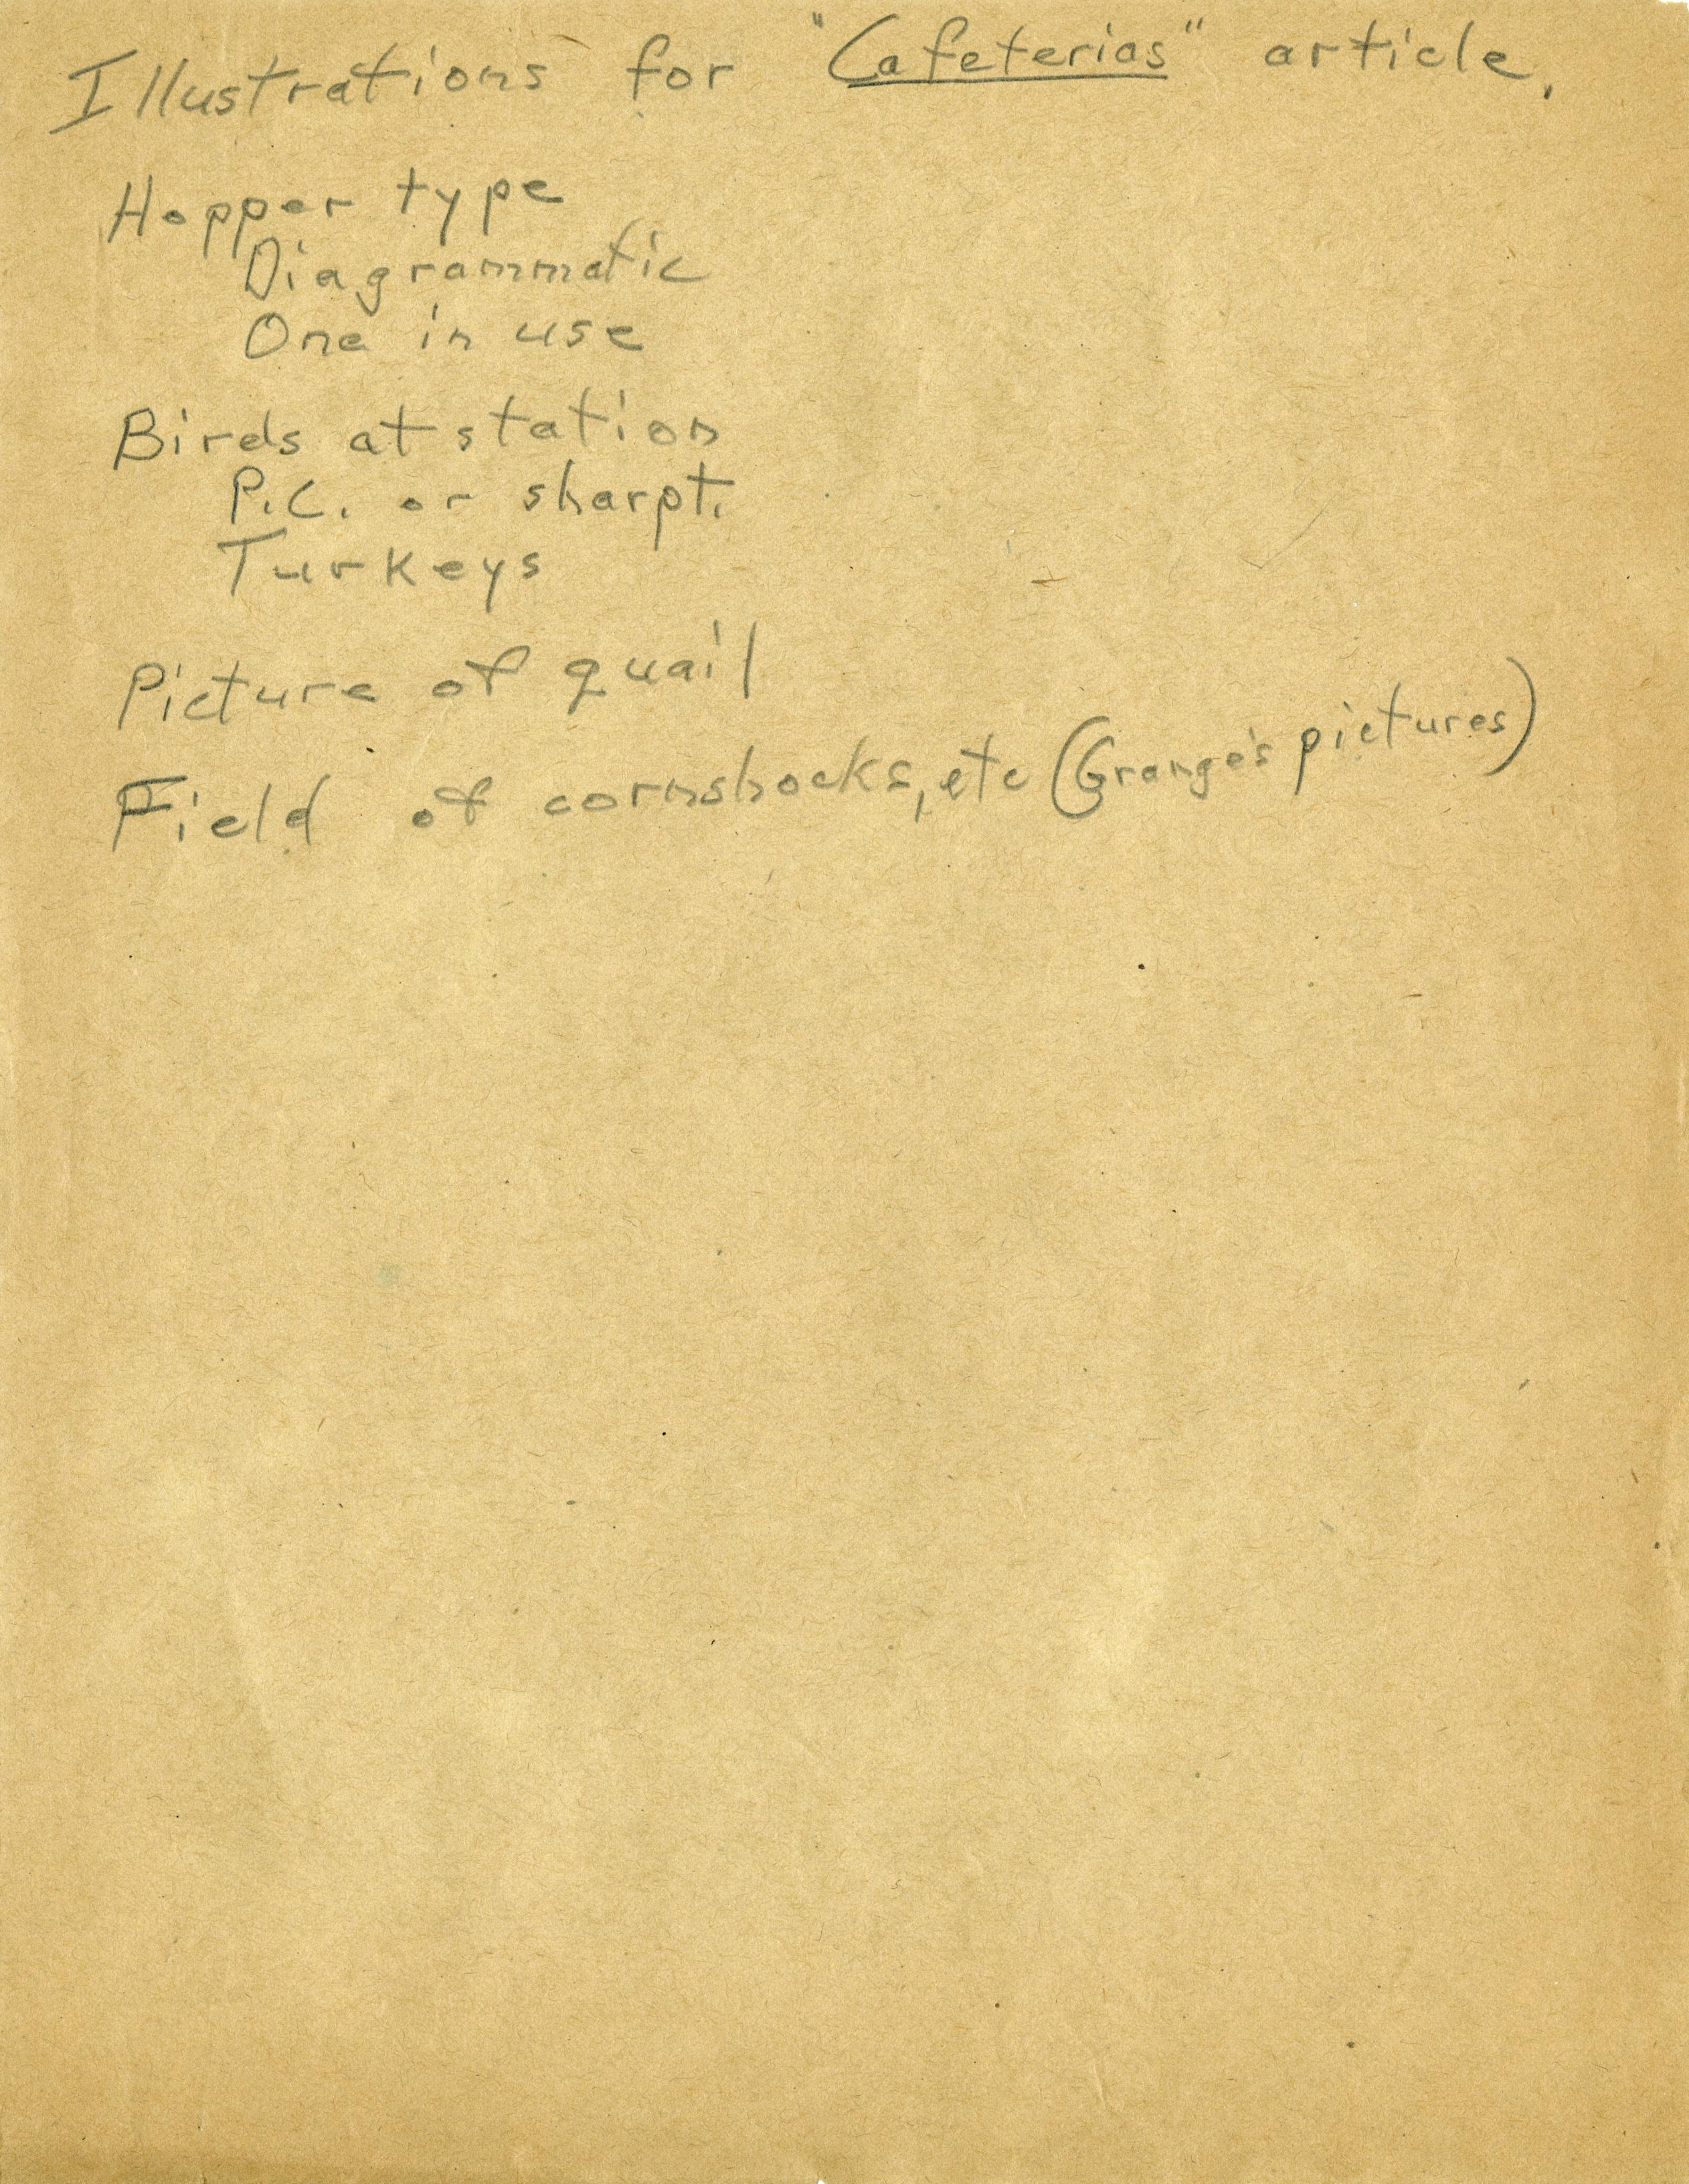 Illustrations for "Cafeterias" article.
Hopper type
Diagrammatic
One in use
Birds at station
P.C. or sharpt.
Turkeys
Picture of quail
Field of cornshocks, etc (Grange's pictures)